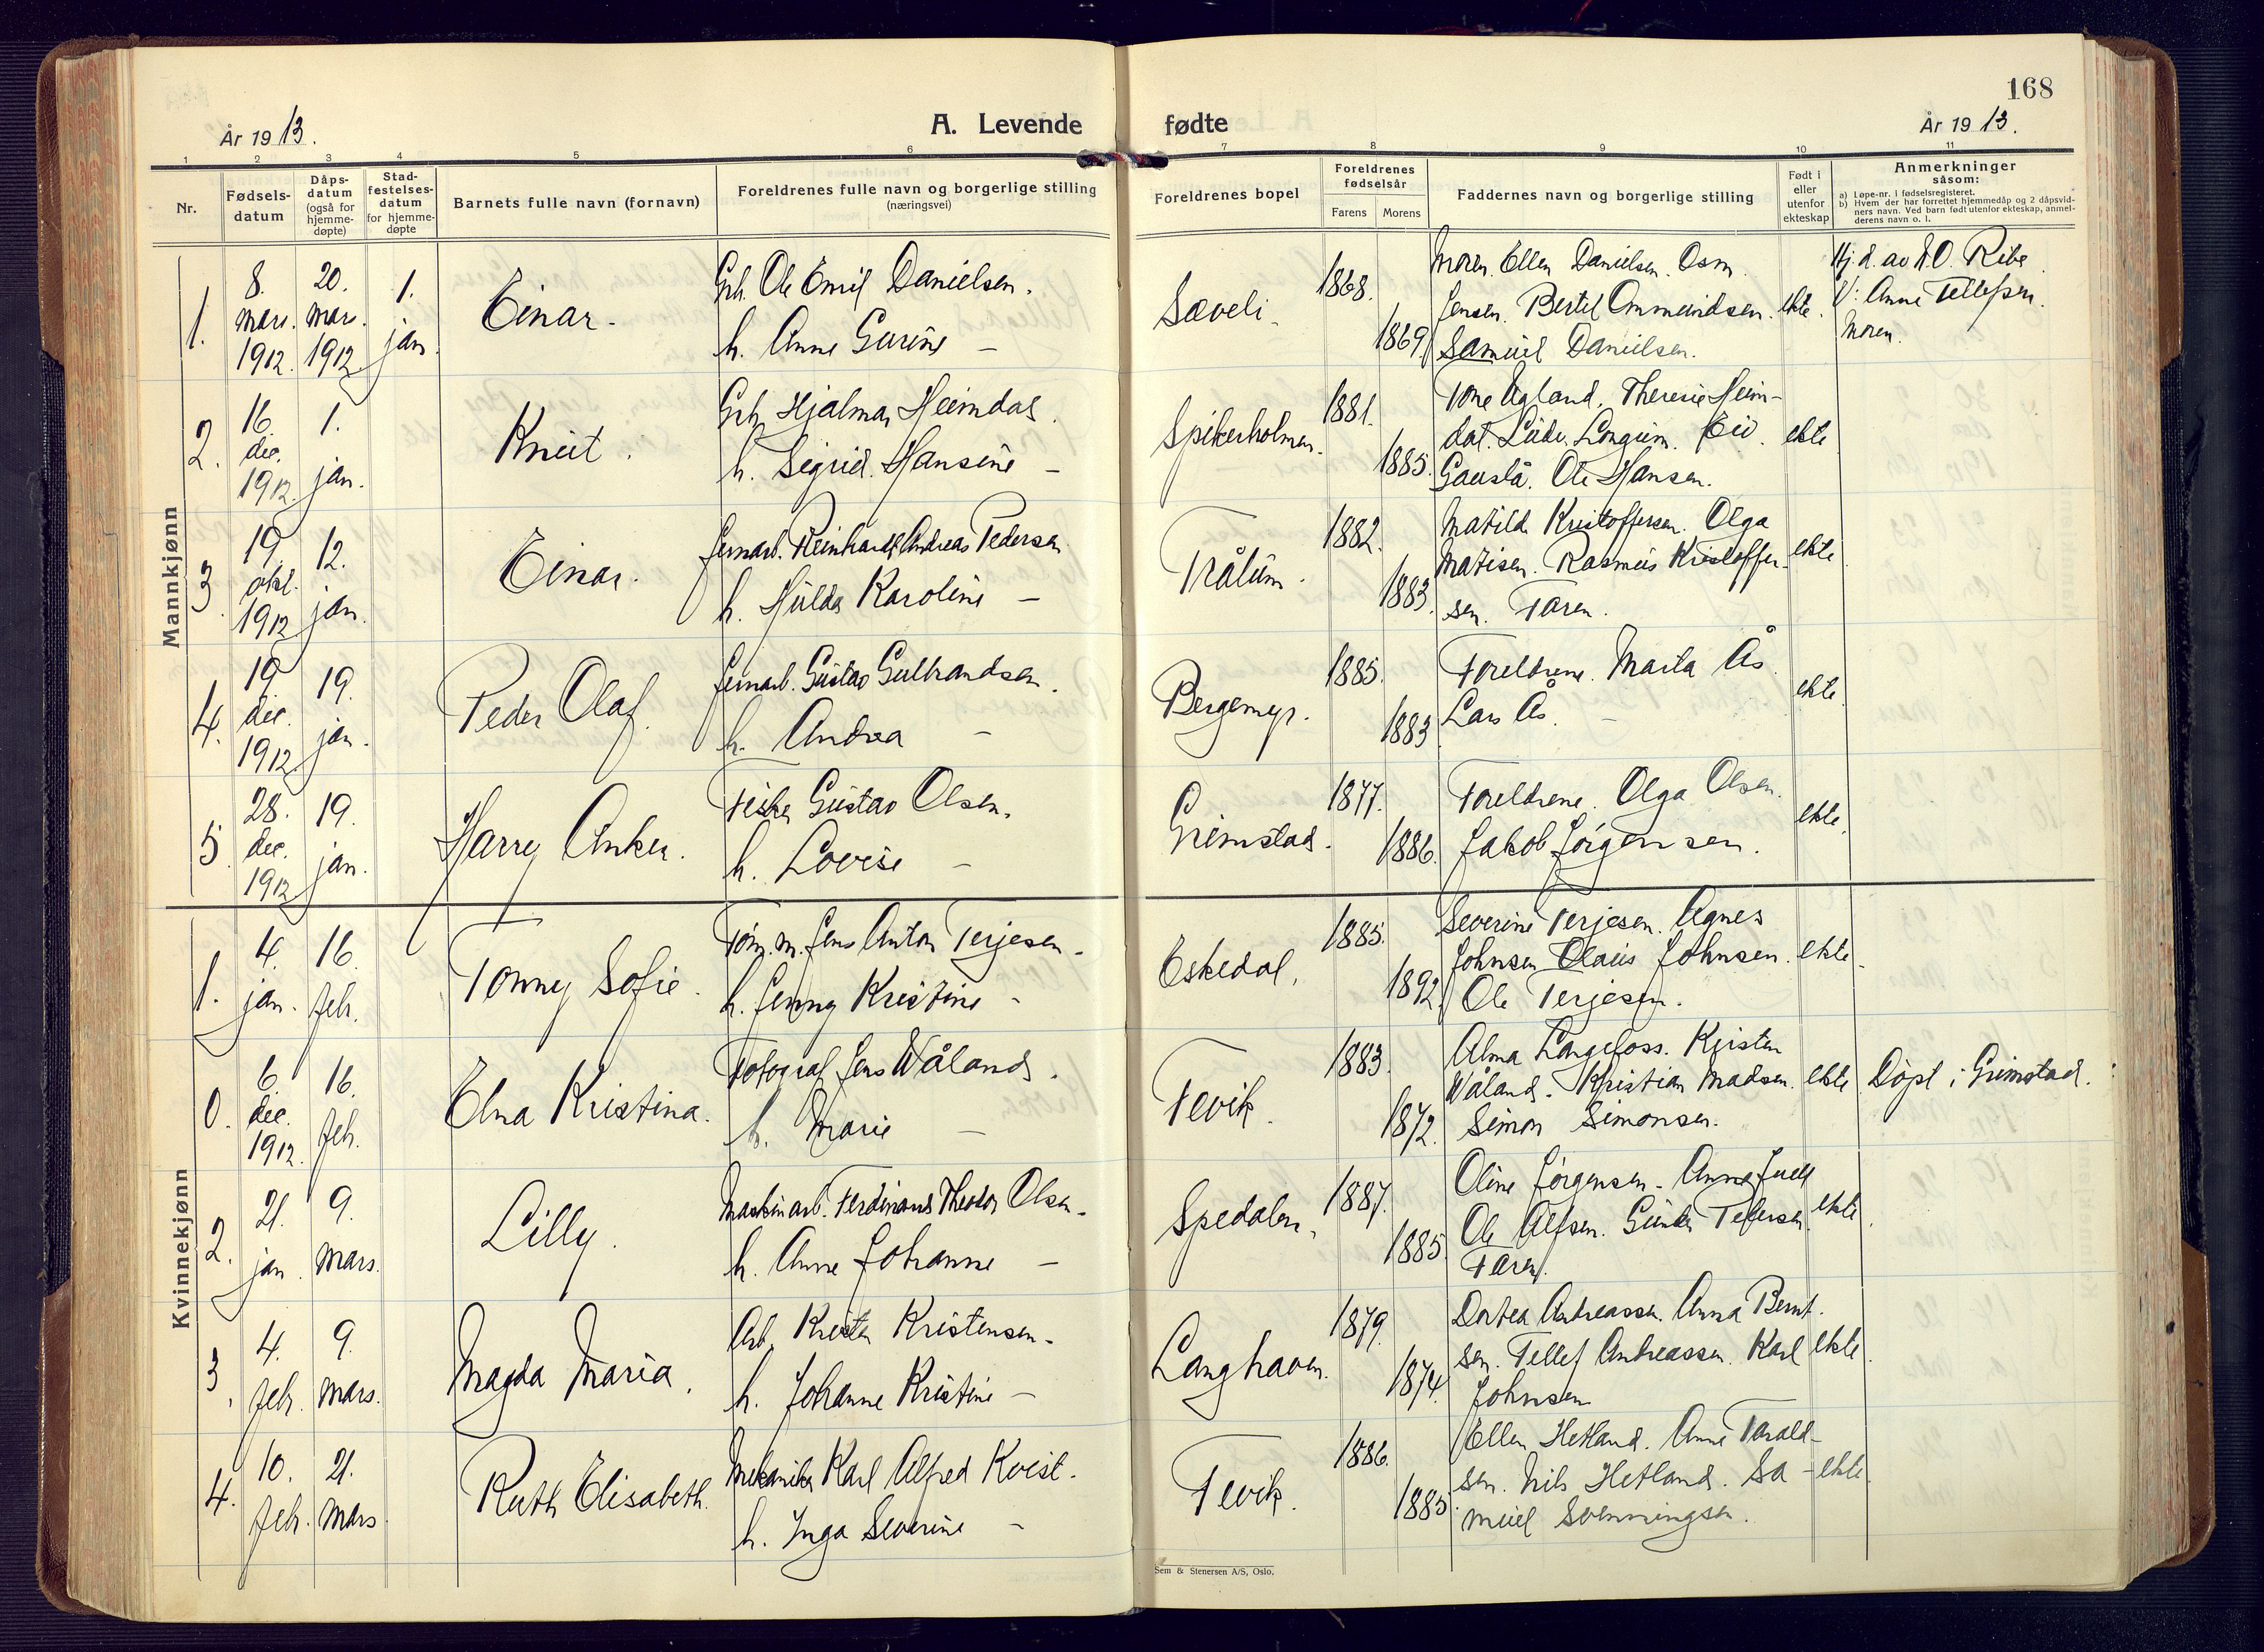 168
År 1913.
A. Levende fødte
År 1913.
1 2 3 4 5 6 7 8 9 10 11
Nr.
Fødsels-
datum
Dåps-
datum
(også for
hjemme-
døpte)
Stad-
festelses-
datum
for hjemme-
døpte
Barnets fulle navn (fornavn)
Foreldrenes fulle navn og borgerlige stilling
(næringsvei)
Foreldrenes bopel
Foreldrenes
fødselsår
Farens Morens
Faddernes navn og borgerlige stilling
Født i
eller
utenfor
ekteskap
Anmerkninger
såsom:
a) Løpe-nr. i fødselsregisteret.
b) Hvem der har forrettet hjemmedåp og 2 dåpsvid-
ners navn. Ved barn født utenfor ekteskap, anmel-
derens navn o. l.
Mannkjønn
1.
8.
mars.
1912.
20.
mars.
1912
1.
jan.
Einar.
Grb. Ole Emil Danielsen.
h. Anne Gurine —
Sæveli.
1868.
1869
Moren. Ellen Danielsen. Osm.
Jensen. Bertel Ommundsen.
Samuel Danielsen.
ekte.
Hj. d. av N.O. Ribe
V: Anne Tellefsen.
Moren.
2.
16.
dec.
1912.
1.
jan.
Knut.
Grb. Hjalmar Heimdal.
h. Sigrid Hansine —
Spikerholmen.
1881.
1885.
Tone Ugland. Therese Heim-
dal. Ludv. Longum. Eiv.
Gauslå. Ole Hansen.
ekte
3.
19.
okt.
1912
12.
jan.
Einar.
Jernarb. Reinhardt Andreas Pedersen
h. Hulda Karoline —
Trålum.
1882.
1883.
Matilde Kristoffersen. Olga
Matisen. Rasmus Kristoffer-
sen. Faren.
ekte
4.
19
dec.
1912
19.
jan.
Peder Olaf.
Jernarb. Gustav Gulbrandsen.
h. Andrea —
Bergemyr.
1885.
1883
Foreldrene. Marta Ås.
Lars Ås.
ekte.
5.
28.
dec.
1912
19.
jan.
Harry Anker.
Fisker Gustav Olsen.
h. Lovise —
Grimstad.
1877.
1886.
Foreldrene. Olga Olsen.
Jakob Jørgensen.
ekte.
Kvinnekjønn
1.
4.
jan.
16.
feb.
Tonny Sofie.
Tøm.m. Jens Anton Terjesen.
h. Jenny Kristine —
Eskedal.
1885.
1892
Severine Terjesen. Agnes
Johnsen Olaus Johnsen.
Ole Terjesen.
ekte
0.
6.
dec.
1912.
16.
feb.
Elna Kristina.
Fotograf Jens Wåland.
h. Marie —
Fevik.
1883.
1872.
Alma Langefoss. Kristen
Wåland. Kristian Madsen.
Simon Simonsen.
ekte
Døpt i Grimstad.
2.
21.
jan.
9.
mars.
Lilly.
Maskinarb. Ferdinand Theodor Olsen.
h. Anne Johanne —
Spedalen.
1887.
1885.
Oline Jørgensen. Anna Juell
Ole Alfsen. Tellefsen
Faren.
ekte
3.
4.
feb.
9.
mars.
Magda Maria.
Arb. Kristen Kristensen.
h. Johanne Kristine —
Langhaven.
1879.
1874.
Dortea Andreassen. Anna Bernt-
sen. Tellef Andreassen. Karl
Johnsen
ekte
4.
10.
feb.
21.
mars
Ruth Elisabeth.
Mekaniker Karl Alfred Kvist.
h. Inga Severine —
Fevik.
1886.
1885.
Ellen Hetland. Anne Tarald-
sen. Nils Hetland. Sa-
muel Svenningsen.
ekte
Sem & Stenersen A/S, Oslo.